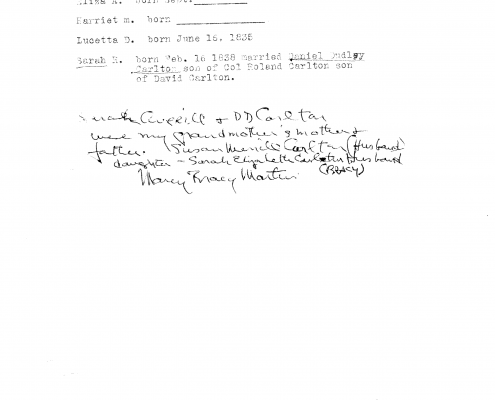 Eliza A. born Sept.
Harriet m. born
Lucetta D. born June 15, 1835
Sarah E. born Feb. 16 1838 married Daniel Dudley
Carlton son of Col Roland Carlton son
of David Carlton.
& DD Carlton
were my grandmother's mother &
father. Susan Merrill Carlton (Husband
daughter - Sarah Elizabeth Carlton Husband
(Bracy)
Nancy Bracy Martin